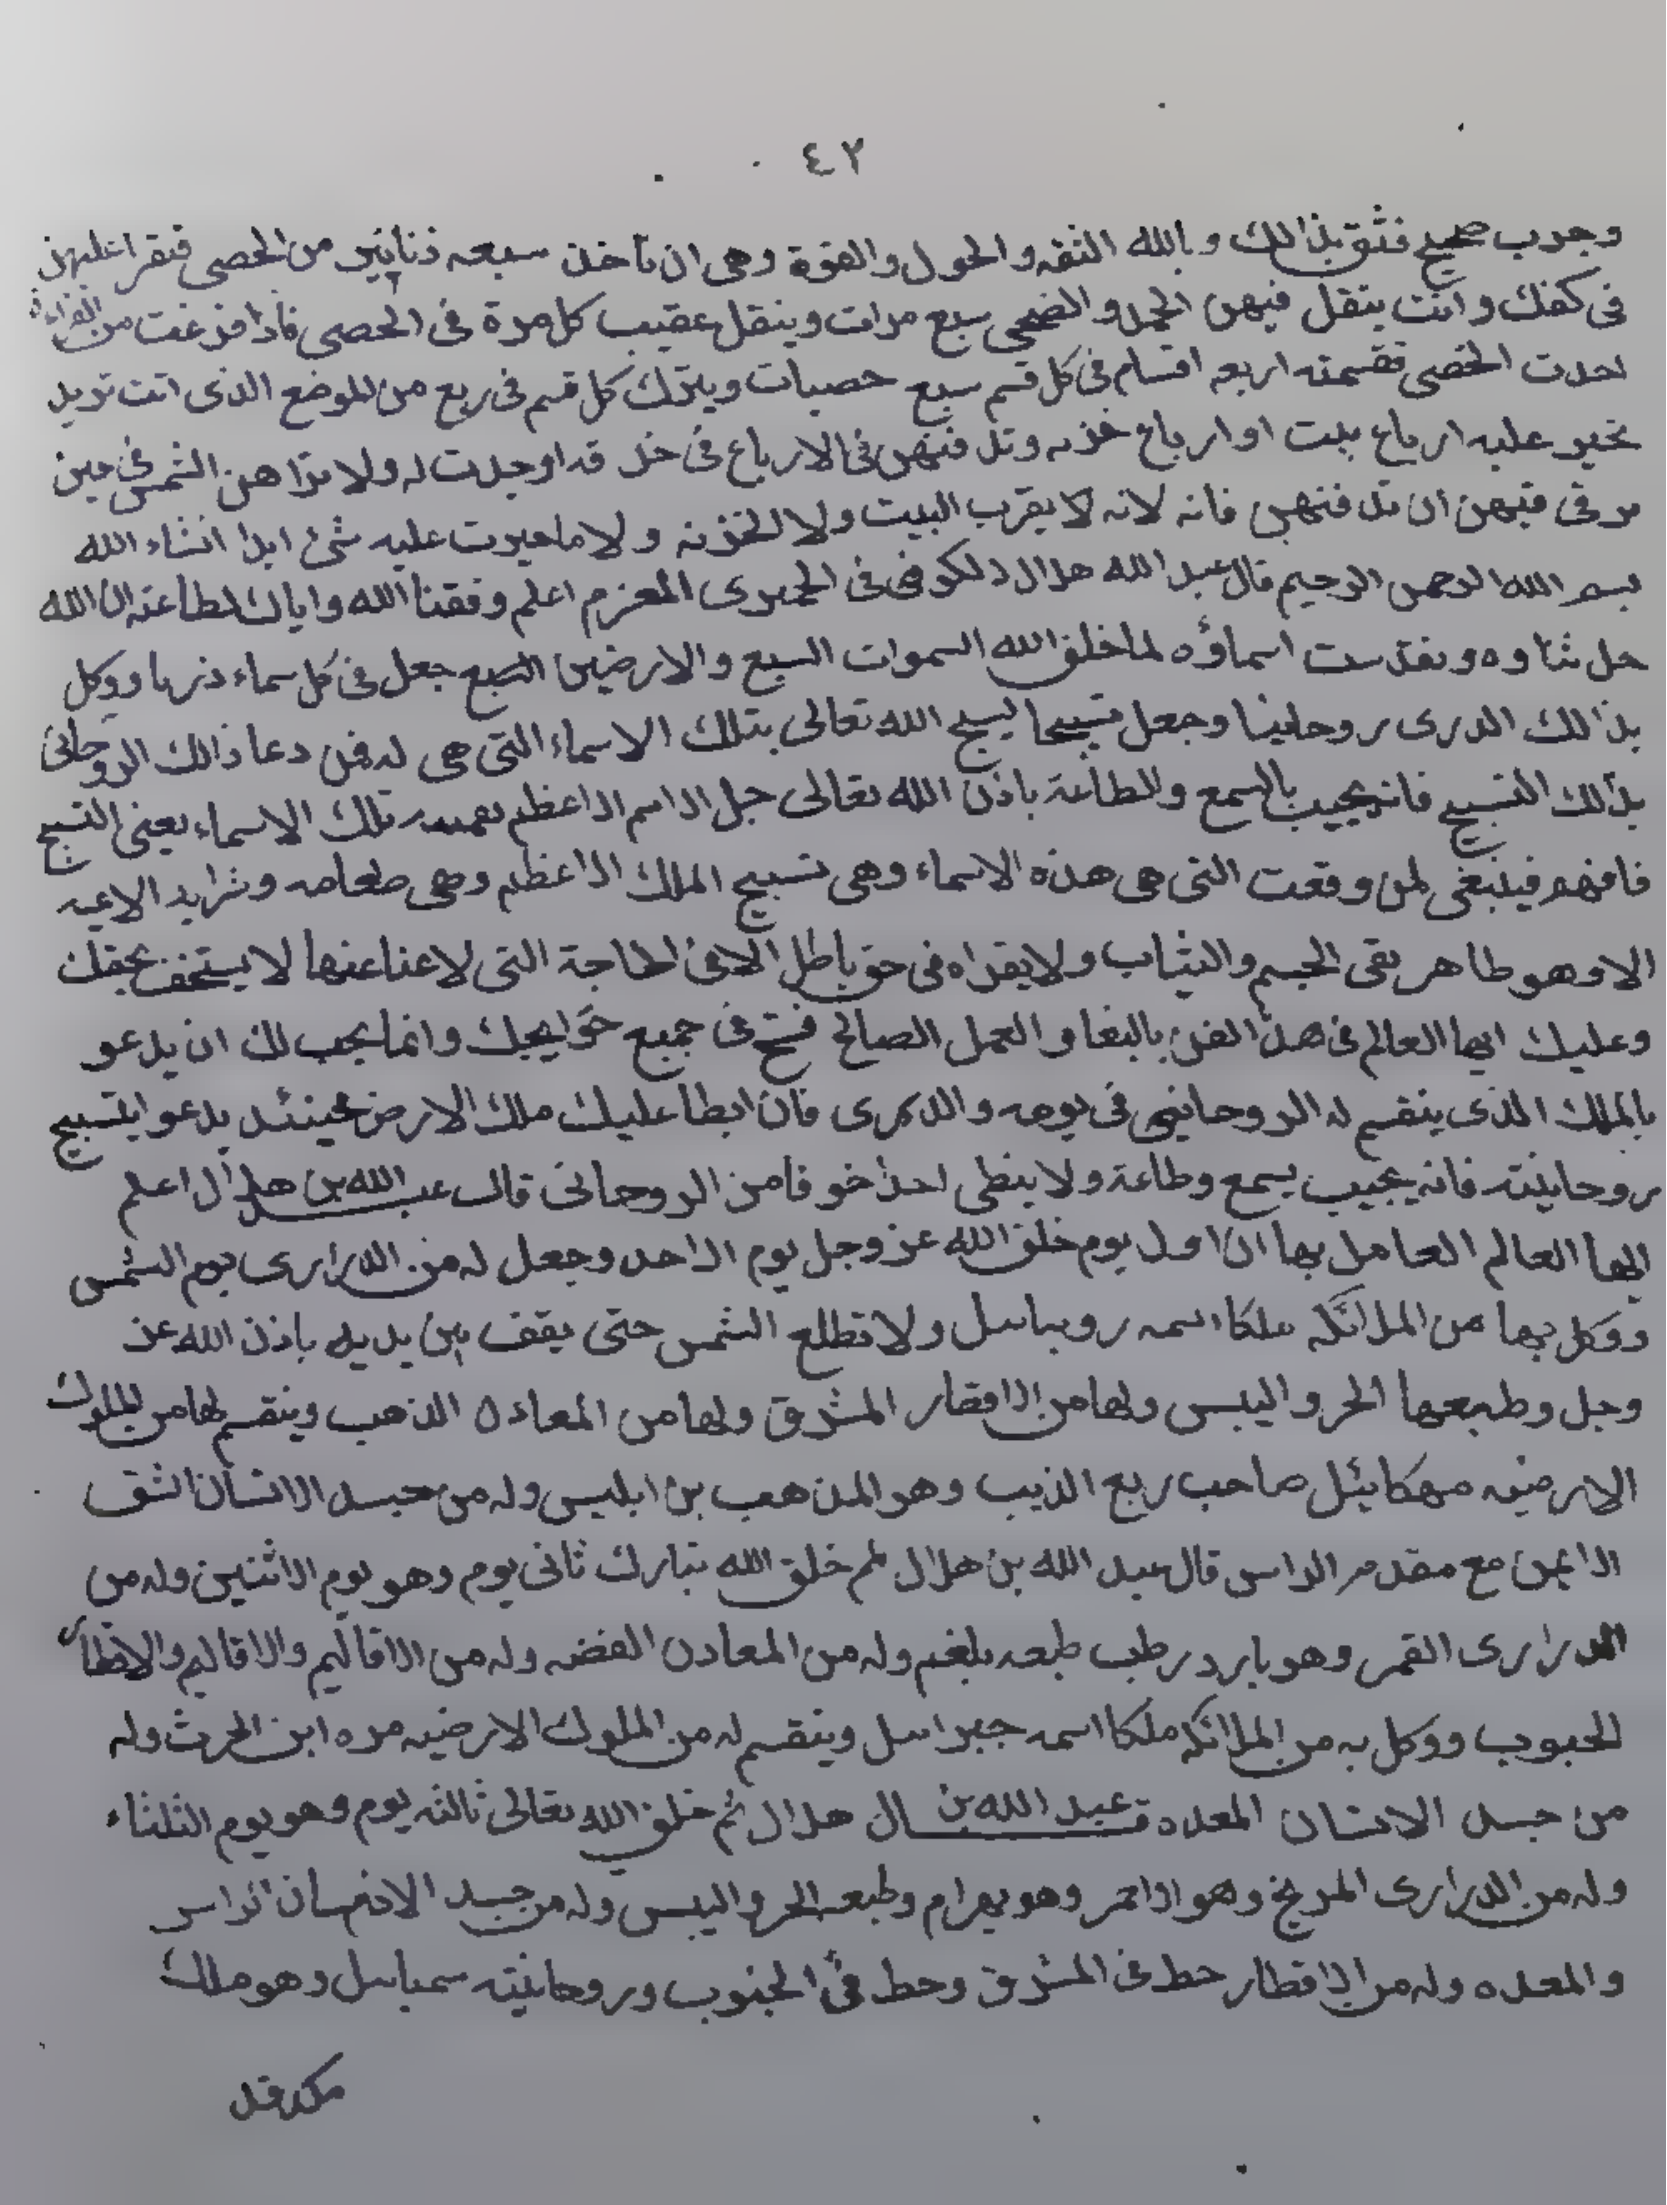 ٤٢
وجرب صحيح فثق بذالك وبالله الثقه والحول والقوة وهى ان تأخذ سبعه دنانير من الحصى فتقرا عليهن
فى كفك وانت ينقل فيهن الحمد والضحى سبع مرات وينقل عقيب كل مرة فى الحصى فاذا فرغت من القراءة
احدت الحصى فقسمته اربعه اقسام فى كل قسم سبع حصيات ويترك كل قسم فى ربع من الموضع الذى انت تريد
عليه ارباع بيت او ارباع خزنه فى الارباع فى قد له ولا تراهن الشمس فى حين
فيهن ان فانه لانه لا يقرب البيت ولا الخزنه ولا ما عليه شئ ابدا انشاء الله
بسم الله الرحمن الرحيم قال عبد الله هلال الكوفى فى المعزم اعلم وفقنا الله واياك لطاعته ان الله
جل ثناوه وتقدست اسماؤه لما خلق الله السموات السبع والارضين السبع جعل فى كل سماء دريا ووكل
بذالك الدرى روحانيا وجعل تسبيحا يسبح الله تعالى بتلك الاسماء التى هى له فمن دعا ذالك الروحانى
بذالك التسبيح فانه يجيب بالسمع والطاعة باذن الله تعالى جل الاسم الاعظم تلك الاسماء يعنى التسبيح
فافهم فينبغى لمن وقعت التى هى هذه الاسماء وهى تسبيح الملك الاعظم وهى طعامه
الا وهو طاهر نقى الجسم والثياب ولا يقراه فى حق باطل الا فى الحاجة التى لا عنا عنها لا يستخف بحقك
وعليك ايها العالم فى هذا الفن بالبقا والعمل الصالح فتح فى جميع حوايجك وانما يجب لك ان يدعو
بالملك الذى ينقسم له الروحانيه فى يومه والدرى فان ابطا عليك ملك الارض فحينئد يدعو ابتسبيح
روحانيته فانه يجيب بسمع وطاعة ولا يبطى احدا خوفا من الروحانى قال عبد الله بن هلال اعلم
ايها العالم العامل بها ان اول يوم خلق الله عز وجل يوم الاحد وجعل له من الدرارى يوم الشمس
ووكل بها من الملائكه ملكا اسمه روبياىىل ولا تطلع الشمس حتى يقف بين يديه باذن الله عز
وجل وطبعها الحر واليبس ولها من الاقطار المشرق ولها من المعادن الذهب وينقسم لها من الملوك
الارضيه مهكائيل صاحب ربع الذيب وهو المذهب بن ابليس وله من جسد الانسان الشق
الايمن مع مقدمر الراس قال عبد الله بن هلال ثم خلق الله تبارك ثانى يوم وهو يوم الاثنين وله من
الدرارى القمر وهو بارد رطب طبعه بلغم وله من المعادن الفضه وله من الاقاليم والاقاليم والاقطار
الجبوب ووكل به من الملائكه ملكا اسمه جبراىىل وينقسم له من الملوك الارضيه مره ابن الحرث وله
من جسد الانسان المعده قــال عبد الله بن هلال ثم خلق الله تعالى ثالثه يوم وهو يوم الثلثاء
وله من الدرارى المريخ وهو الاحمر وهو بهرام وطبعه الحر واليبس وله من جسد الانسان الراس
والمعده وله من الاقطار حط فى المشرق وحط فى الجنوب وروحانيته سمياىىل وهو ملك